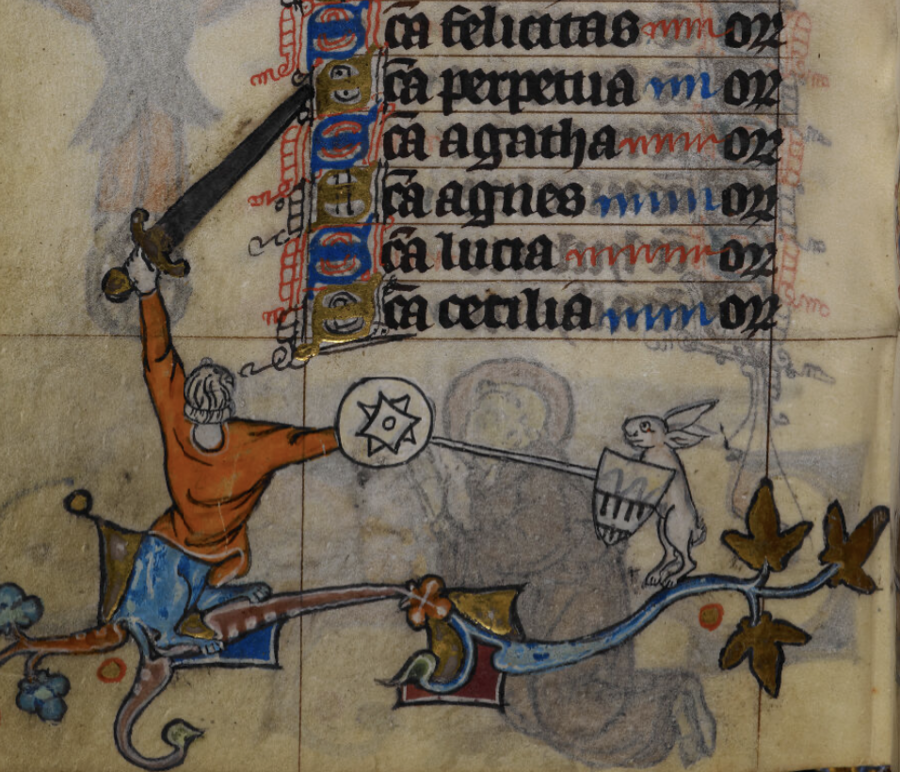 Sc̄a felicitas or
Sc̄a perpetua or
Sc̄a agatha or
Sc̄a agnes or
Sc̄a lucia or
Sc̄a cecilia or